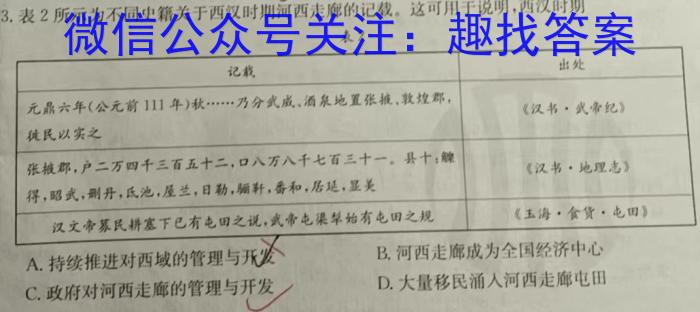 3. 表2所示为不同史籍关于西汉时期河西走廊的记载。这可用于说明,西汉时期
微信公众号关注：趣找答案
记载 出处
元鼎六年(公元前111年)秋……乃分武威、酒泉地置张掖、敦煌郡， 《汉书·武帝纪》
徙民以实之
张掖郡,户二万四千三百五十二,口八万八千七百三十一。县十:觻 《汉书·地理志》
得,昭武,删丹,氐池,屋兰,日勒,骊靬,番和,居延,显美
汉文帝募民耕塞下已有屯田之说,武帝屯渠犁始有屯田之规 《玉海·食货·屯田》
A. 持续推进对西域的管理与开发 B. 河西走廊成为全国经济中心
C. 政府对河西走廊的管理与开发 D. 大量移民涌入河西走廊屯田